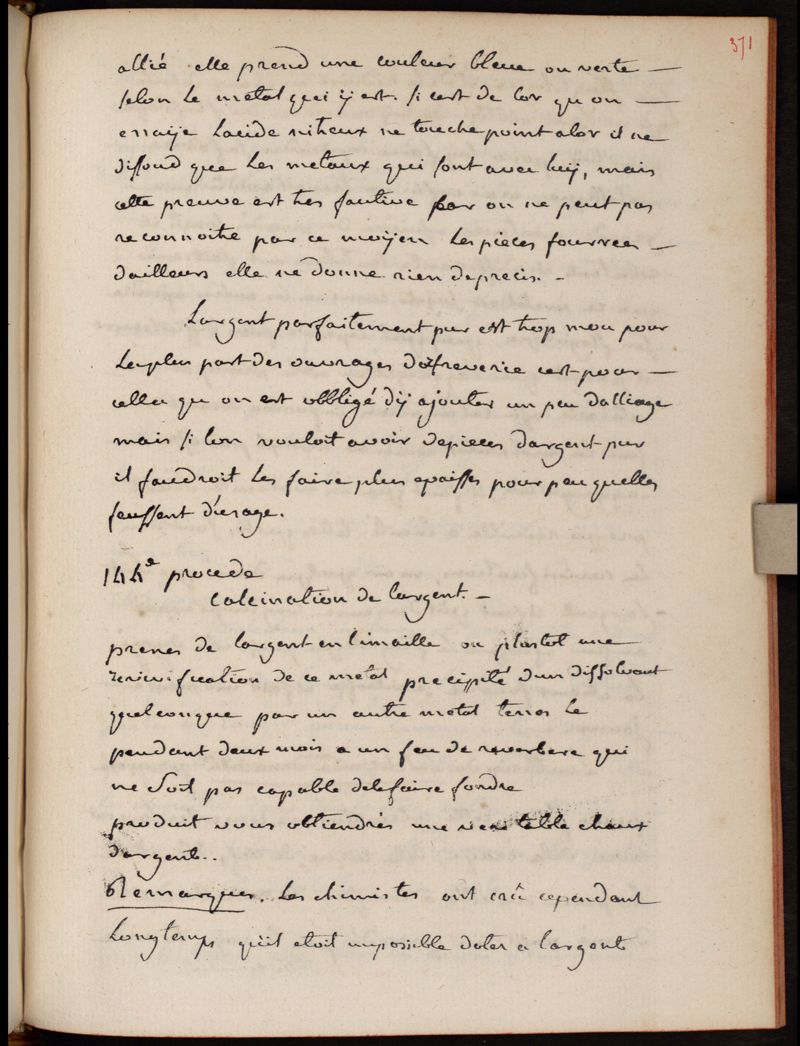 371
allié elle prend une couleur bleue ou verte —
selon le metal qui ÿ est. si cest de lor qu on —
essaÿe lacide nitreux ne touche point alor il ne
dissoud que les metaux qui sont avec luÿ, mais
cette preuve est tres fautive par on ne peut pas
reconnoitre par ce moÿen les pieces fourrees —
dailleurs elle ne donne rien deprecis. -
Largent parfaitement pur est trop mou pour
la plus part des ouvrages dorfreverie cest pour —
cella qu on est obbligé dÿ ajouter un peu dalliage
mais si lon vouloit avoir depieces dargent pur
il faudroit les faire plus epaisses pour peu quelles
feussent d'usage.
144e procede
Calcination de largent. -
prenes de largent en limaille ou plustot une
revivification de ce metal precipité dun dissolvant
quelconque par un autre metal tenes le
pendant deux mois a un feu de reverbere qui
ne soit pas capable delefaire fondre
produit vous obtiendrés une veritable chaux
d'argent..
Remarques. Les chimistes ont crû cependant
Longtemps qu'il etoit impossible doter a largent